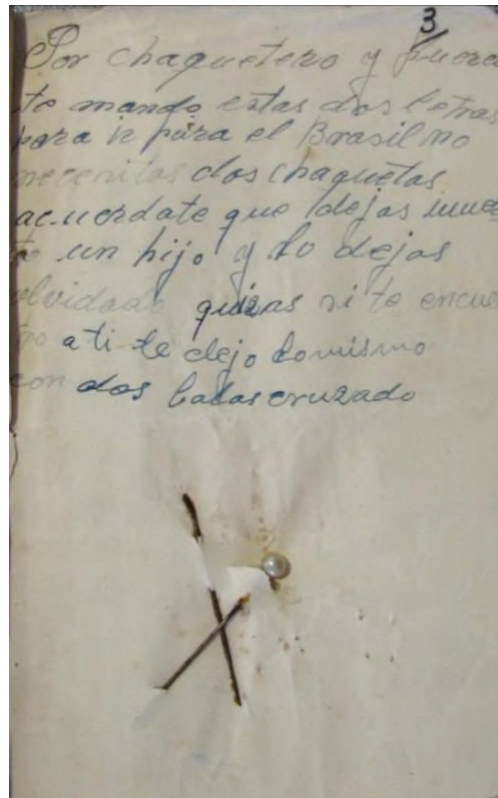 3
Por chaquetero y puerco
te mando estas dos letras
para ir para el Brasil no
necesitas dos chaquetas
acuerdate que dejas
un hijo y lo dejas
olvidado quizas si te
a ti te dejo lo mismo
con dos balas cruzado